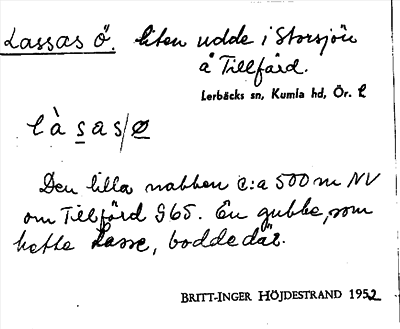 Lassas ö. liten udde i Storsjön
å Tillfärd.
Lerbäcks sn, Kumla hd, Ör. L
l à s a s/ø
Den lilla nabben c:a 500 m NV
om Tillfärd 965. En gubbe, som
hette Lasse, bodde där.
BRITT-INGER HÖJDESTRAND 1952